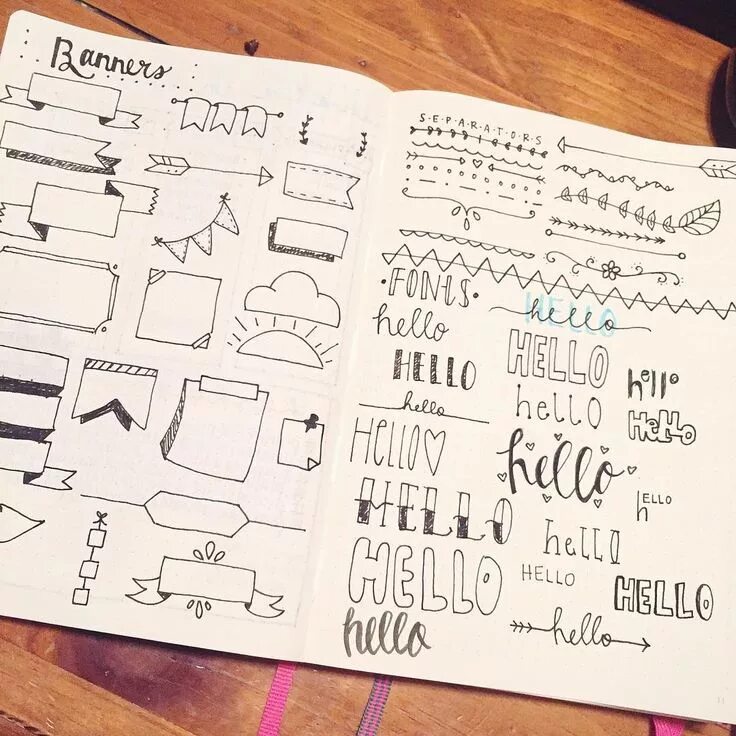 Banners
S·E·P·A·R·A·T·O·R·S
·FONTS·
hello
HELLO
hello
HELLO
HELLO
HELLO
hello
HELLO
hello
HELLO
hello
hello
hello
HeLLo
hello
hELLO
hello
HELLO
HELLO
hello